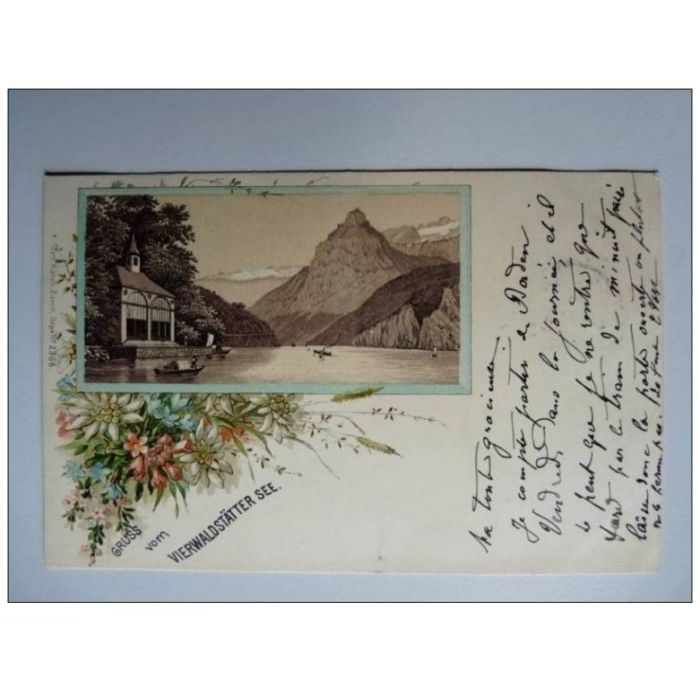 GRUSS
vom
VIERWALDSTÄTTER SEE.
Ma toute gracieuse
Je compte partir de Baden
Vendredi dans la journée et il
se peut que je ne rentre que
tard par le train de minuit
laisse donc la porte ouverte ou plutôt